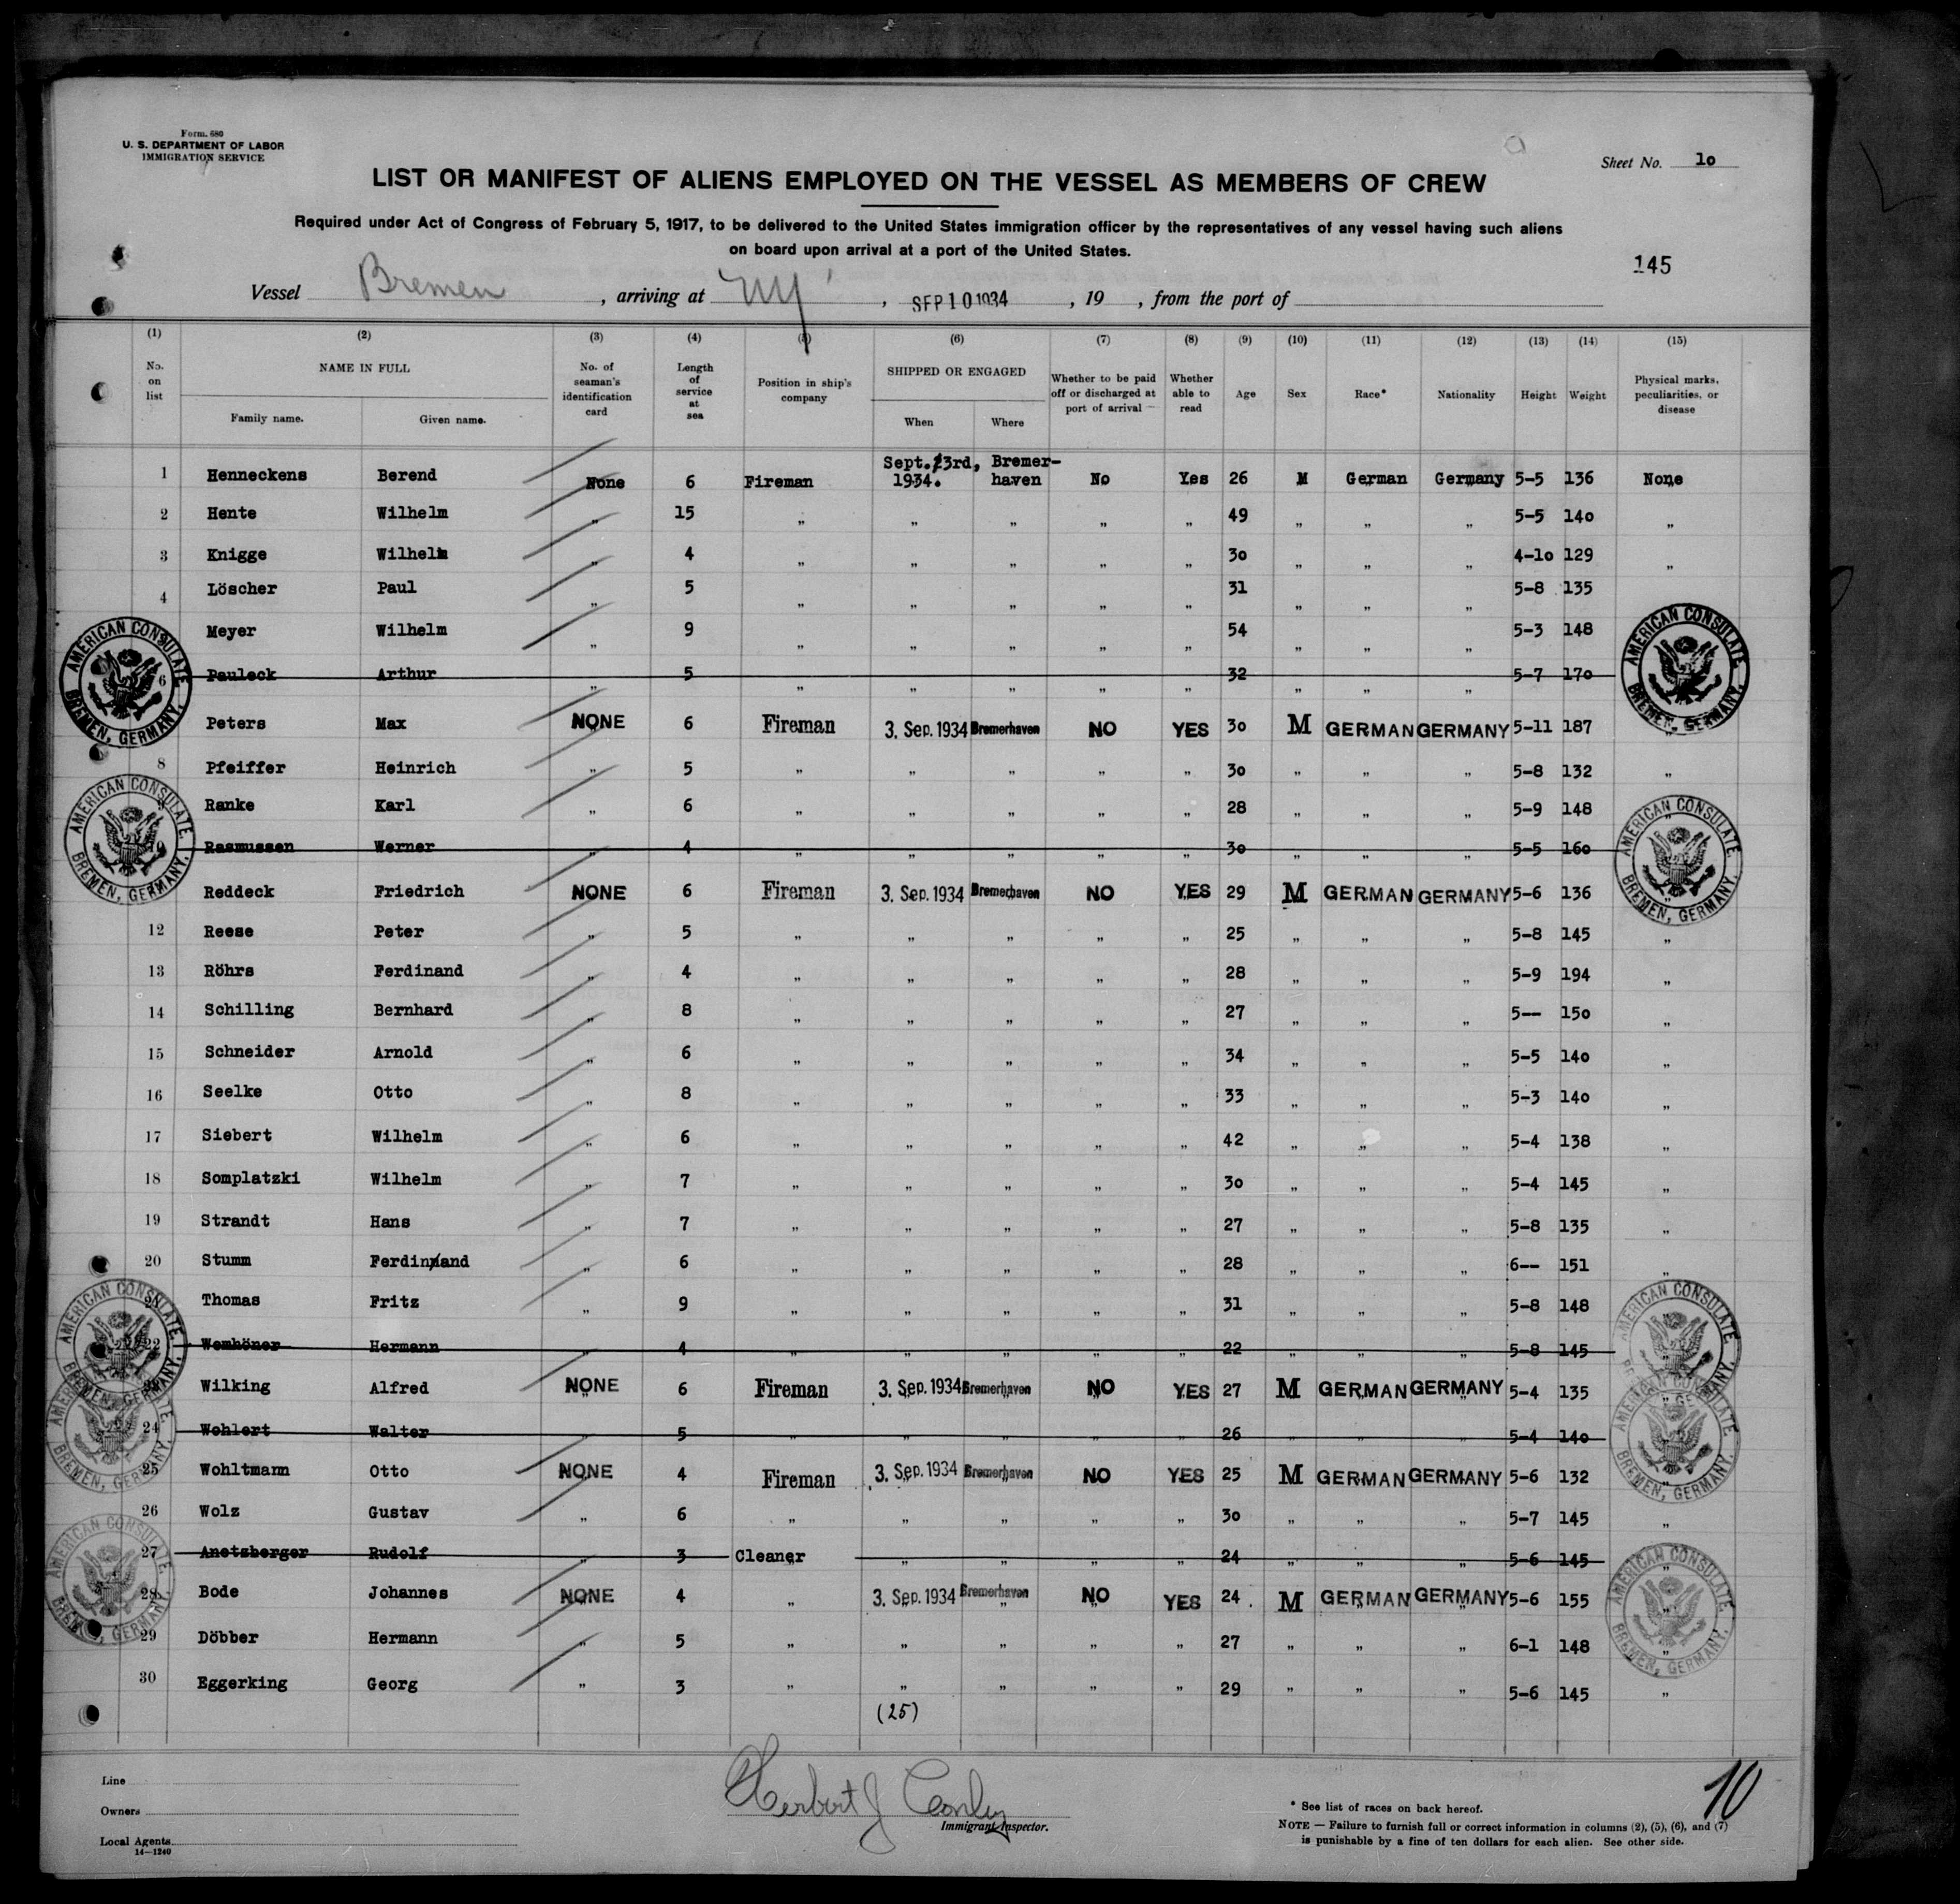 Form. 680
U. S. DEPARTMENT OF LABOR
IMMIGRATION SERVICE
Sheet No. 10
LIST OR MANIFEST OF ALIENS EMPLOYED ON THE VESSEL AS MEMBERS OF CREW
Required under Act of Congress of February 5, 1917, to be delivered to the United States immigration officer by the representatives of any vessel having such aliens
on board upon arrival at a port of the United States.
145
Vessel Bremen , arriving at NY , SEP 10 1934 , 19 , from the port of
(1) (2) (3) (4) (5) (6) (7) (8) (9) (10) (11) (12) (13) (14) (15)
No. on list NAME IN FULL Family name. Given name. No. of seaman's identification card Length of service at sea Position in ship's company SHIPPED OR ENGAGED When Where Whether to be paid off or discharged at port of arrival Whether able to read Age Sex Race* Nationality Height Weight Physical marks, peculiarities, or disease
1 Henneckens Berend None 6 Fireman Sept. 3rd, 1934. Bremer-haven No Yes 26 M German Germany 5-5 136 None
2 Hente Wilhelm „ 15 „ „ „ „ „ 49 „ „ „ 5-5 140 „
3 Knigge Wilhelm „ 4 „ „ „ „ „ 30 „ „ „ 4-10 129 „
4 Löscher Paul „ 5 „ „ „ „ „ 31 „ „ „ 5-8 135
Meyer Wilhelm „ 9 „ „ „ „ „ 54 „ „ „ 5-3 148
6 Pauleck Arthur „ 5 „ „ „ „ „ 32 „ „ „ 5-7 170
Peters Max NONE 6 Fireman 3. Sep. 1934 Bremerhaven NO YES 30 M GERMAN GERMANY 5-11 187
8 Pfeiffer Heinrich „ 5 „ „ „ „ „ 30 „ „ „ 5-8 132 „
Ranke Karl „ 6 „ „ „ „ „ 28 „ „ „ 5-9 148
Rasmussen Werner „ 4 „ „ „ „ „ 30 „ „ „ 5-5 160
Reddeck Friedrich NONE 6 Fireman 3. Sep. 1934 Bremerhaven NO YES 29 M GERMAN GERMANY 5-6 136
12 Reese Peter „ 5 „ „ „ „ „ 25 „ „ „ 5-8 145 „
13 Röhrs Ferdinand „ 4 „ „ „ „ „ 28 „ „ „ 5-9 194 „
14 Schilling Bernhard „ 8 „ „ „ „ „ 27 „ „ „ 5-- 150 „
15 Schneider Arnold „ 6 „ „ „ „ „ 34 „ „ „ 5-5 140 „
16 Seelke Otto „ 8 „ „ „ „ „ 33 „ „ „ 5-3 140 „
17 Siebert Wilhelm „ 6 „ „ „ „ „ 42 „ „ „ 5-4 138 „
18 Somplatzki Wilhelm „ 7 „ „ „ „ „ 30 „ „ „ 5-4 145 „
19 Strandt Hans „ 7 „ „ „ „ „ 27 „ „ „ 5-8 135 „
20 Stumm Ferdinand „ 6 „ „ „ „ „ 28 „ „ „ 6-- 151 „
21 Thomas Fritz „ 9 „ „ „ „ „ 31 „ „ „ 5-8 148
22 Wemhöner Hermann „ 4 „ „ „ „ „ 22 „ „ „ 5-8 145 „
Wilking Alfred NONE 6 Fireman 3. Sep. 1934 Bremerhaven NO YES 27 M GERMAN GERMANY 5-4 135
24 Wohlert Walter „ 5 „ „ „ „ „ 26 „ „ „ 5-4 140
25 Wohltmann Otto NONE 4 Fireman 3. Sep. 1934 Bremerhaven NO YES 25 M GERMAN GERMANY 5-6 132
26 Wolz Gustav „ 6 „ „ „ „ „ 30 „ „ „ 5-7 145 „
27 Anetzberger Rudolf „ 3 Cleaner „ „ „ „ 24 „ „ „ 5-6 145 „
28 Bode Johannes NONE 4 „ 3. Sep. 1934 Bremerhaven NO YES 24 M GERMAN GERMANY 5-6 155 „
29 Döbber Hermann „ 5 „ „ „ „ „ 27 „ „ „ 6-1 148 „
30 Eggerking Georg „ 3 „ „ „ „ „ 29 „ „ „ 5-6 145 „
(25)
AMERICAN CONSULATE, BREMEN, GERMANY.
AMERICAN CONSULATE, BREMEN, GERMANY.
AMERICAN CONSULATE, BREMEN, GERMANY.
AMERICAN CONSULATE, BREMEN, GERMANY.
AMERICAN CONSULATE, BREMEN, GERMANY.
AMERICAN CONSULATE, BREMEN, GERMANY.
AMERICAN CONSULATE, BREMEN, GERMANY.
AMERICAN CONSULATE, BREMEN, GERMANY.
AMERICAN CONSULATE, BREMEN, GERMANY.
AMERICAN CONSULATE, BREMEN, GERMANY.
Line
Owners
Local Agents
14—1240
Herbert J
Immigrant Inspector.
10
* See list of races on back hereof.
NOTE — Failure to furnish full or correct information in columns (2), (5), (6), and (7)
is punishable by a fine of ten dollars for each alien. See other side.